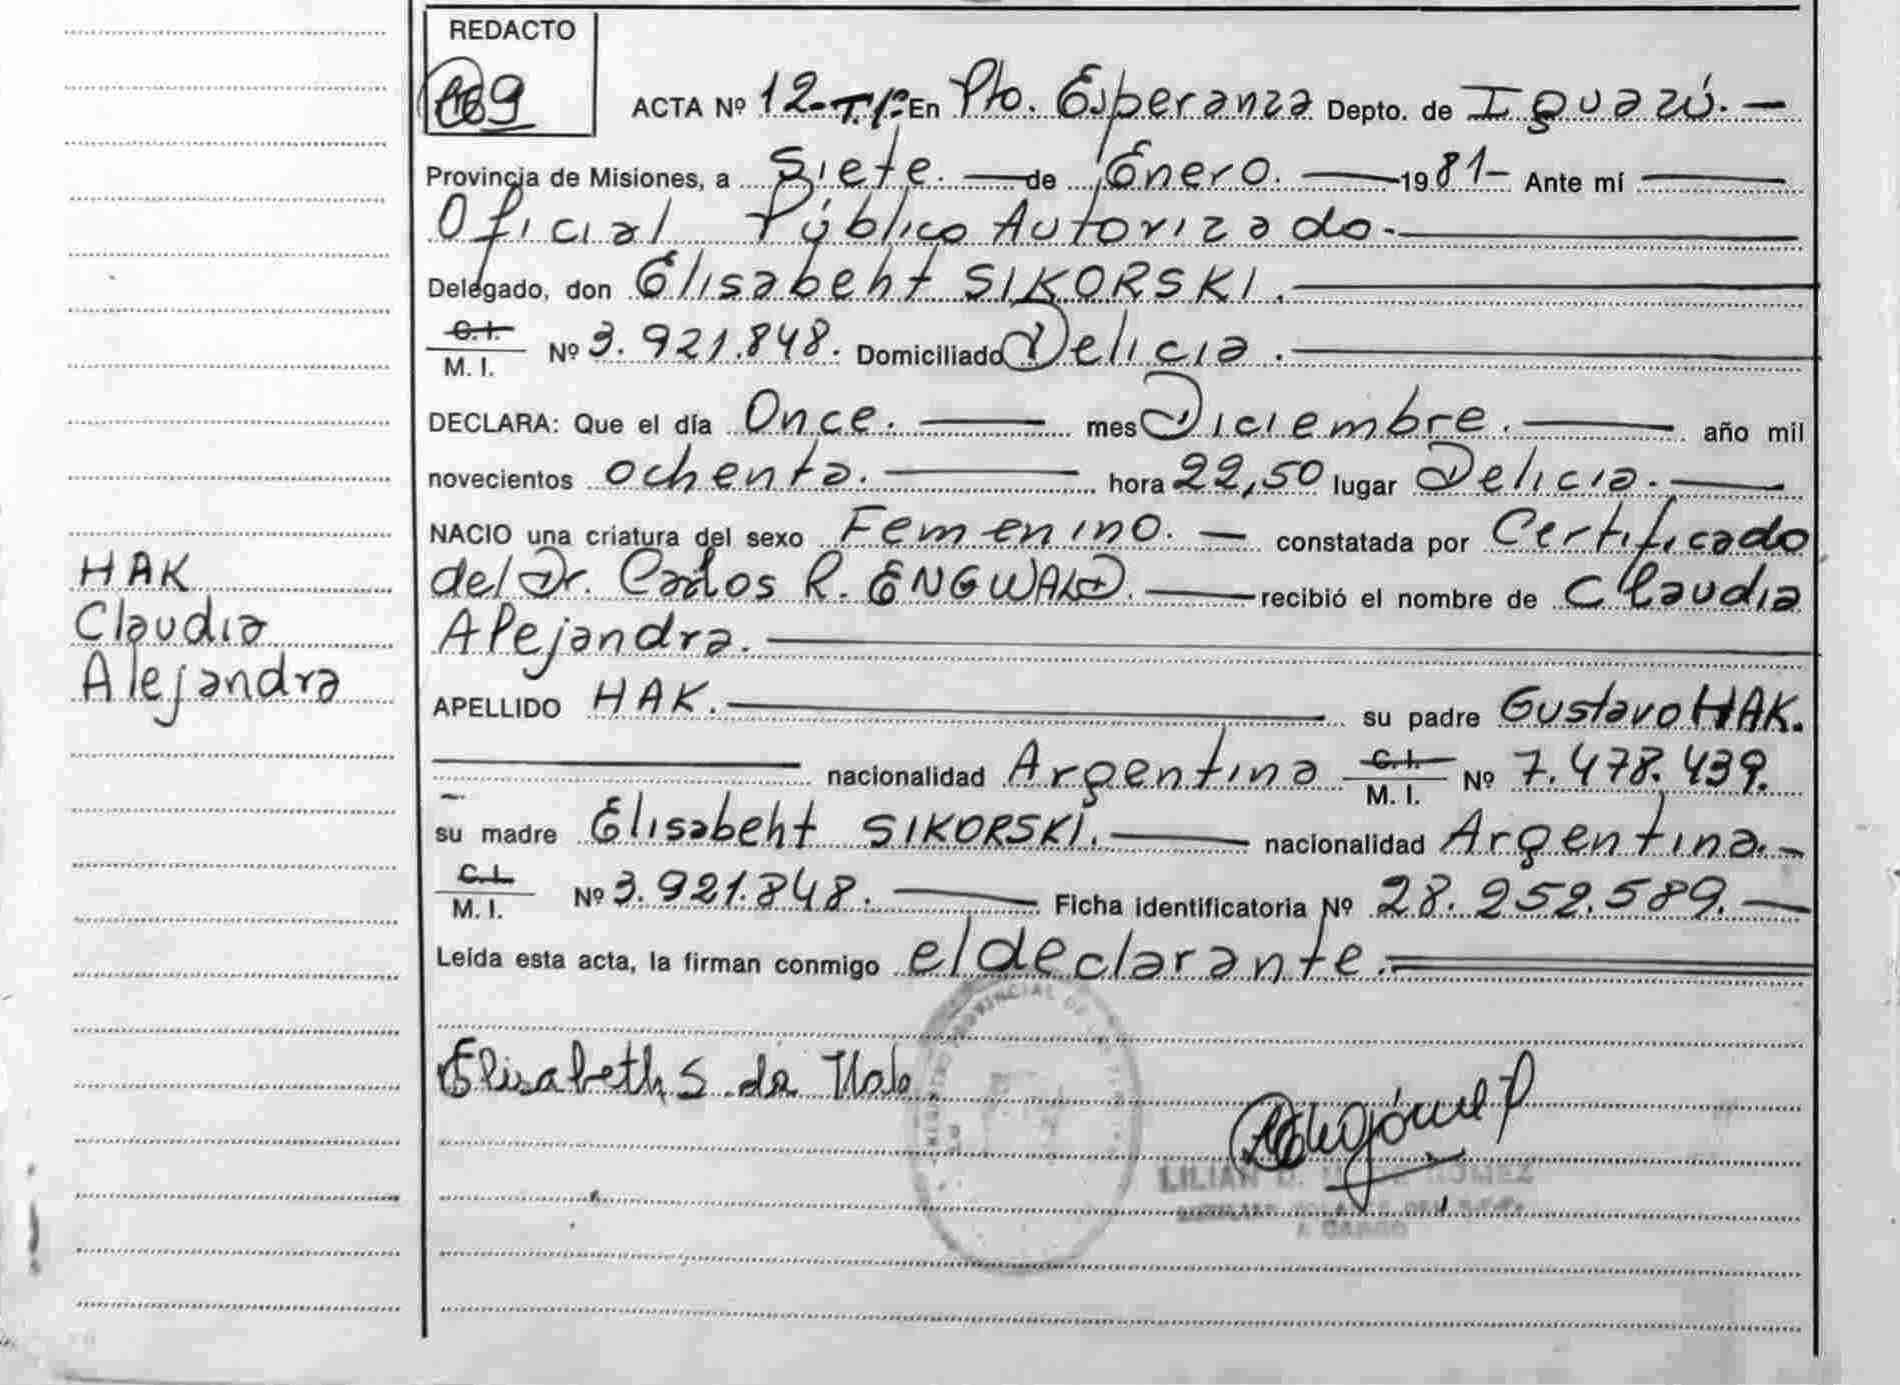 REDACTO
ACTA Nº 12- T.1º En Pto. Esperanza Depto. de Iguazú.
Provincia de Misiones, a Siete. de Enero. 1981- Ante mí
Oficial Público Autorizado.
Delegado, don Elisabeht SIKORSKI.
C.I.
M. I. Nº 3.921.848. Domiciliado Delicia.
DECLARA: Que el día Once. mes Diciembre. año mil
novecientos ochenta. hora 22,50 lugar Delicia.
NACIO una criatura del sexo Femenino. constatada por Certificado
del Dr. Carlos R. ENGWALD. recibió el nombre de Claudia
Alejandra.
HAK
Claudia
Alejandra
APELLIDO HAK. su padre Gustavo HAK.
nacionalidad Argentina C.I.
M. I. Nº 7.478.439.
su madre Elisabeht SIKORSKI. nacionalidad Argentina.
C.I.
M. I. Nº 3.921.848. Ficha identificatoria Nº 28.252.589.
Leída esta acta, la firman conmigo el declarante.
Elisabeth S. de Hak
LILIAN D. GOMEZ
A CARGO